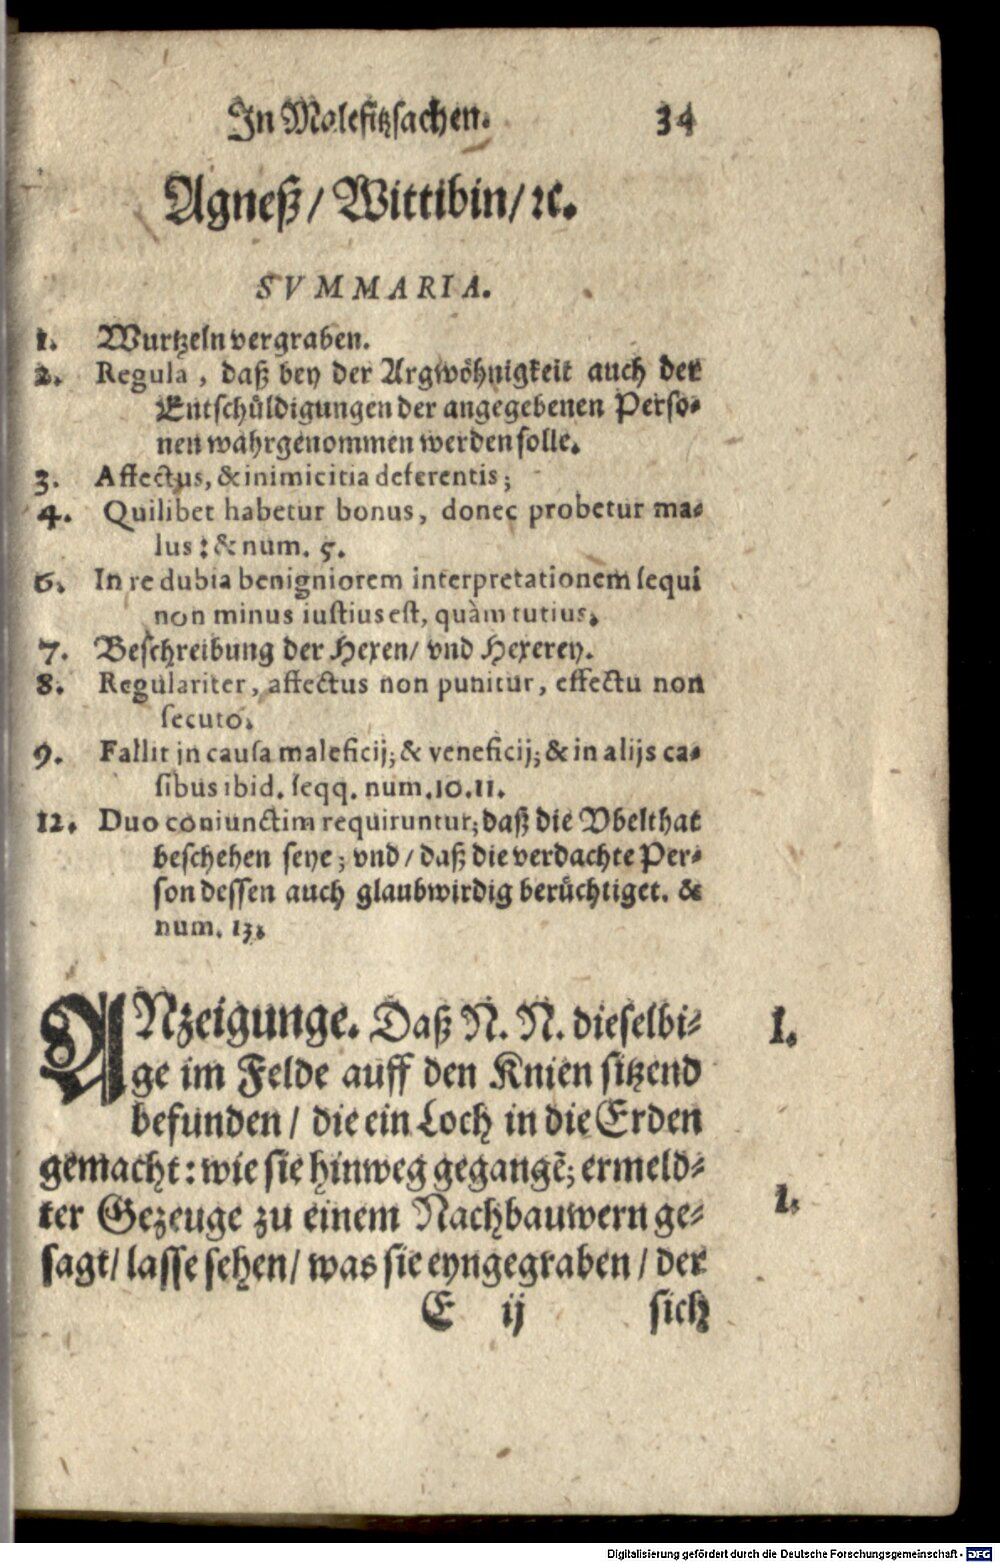 In Malefitzsachen. 34
Agneß/ Wittibin/ ꝛc.
SVMMARIA.
1. Wurtzeln vergraben.
2. Regula, daß bey der Argwöhnigkeit auch der
Entschüldigungen der angegebenen Perso-
nen wahrgenommen werden solle.
3. Affectus, & inimicitia deferentis;
4. Quilibet habetur bonus, donec probetur ma-
lus: & num. 5.
6. In re dubia benigniorem interpretationem sequi
non minus iustius est, quàm tutius.
7. Beschreibung der Hexen/ vnd Hexerey.
8. Regulariter, affectus non punitur, effectu non
secuto.
9. Fallit in causa maleficij; & veneficij; & in alijs ca-
sibus ibid. seqq. num. 10. 11.
12. Duo coniunctim requiruntur; daß die Vbelthat
beschehen seye; vnd/ daß die verdachte Per-
son dessen auch glaubwirdig berüchtiget. &
num. 13.
ANzeigunge. Daß N. N. dieselbi- 1.
ge im Felde auff den Knien sitzend
befunden/ die ein Loch in die Erden
gemacht: wie sie hinweg gegangẽ; ermeld-
ter Gezeuge zu einem Nachbauwern ge- 1.
sagt/ lasse sehen/ was sie eyngegraben/ der
E ij sich
Digitalisierung gefördert durch die Deutsche Forschungsgemeinschaft - DFG